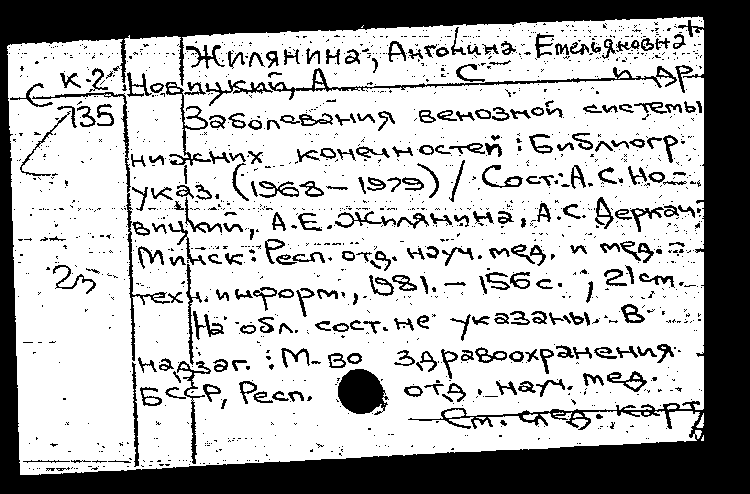 Жилянина, Антонина Емельяновна
С к.2 Новицкий, А С и др.
735 Заболевания венозной системы
нижних конечностей : Библиогр.
указ. (1968 – 1979) / Сост.: А.С.Но-
вицкий, А.Е.Жилянина, А.С.Деркач.
Минск : Респ. отд. науч. мед. и мед.-
техн. информ., 1981. – 156 с. ; 21 см.
На обл. сост. не указаны. В
надзаг. : М-во здравоохранения
БССР, Респ. отд. науч. мед.
См. след. карт.